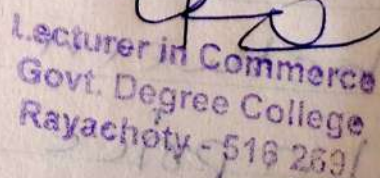 Lecturer in Commerce
Govt. Degree College
Rayachoty - 516 269.